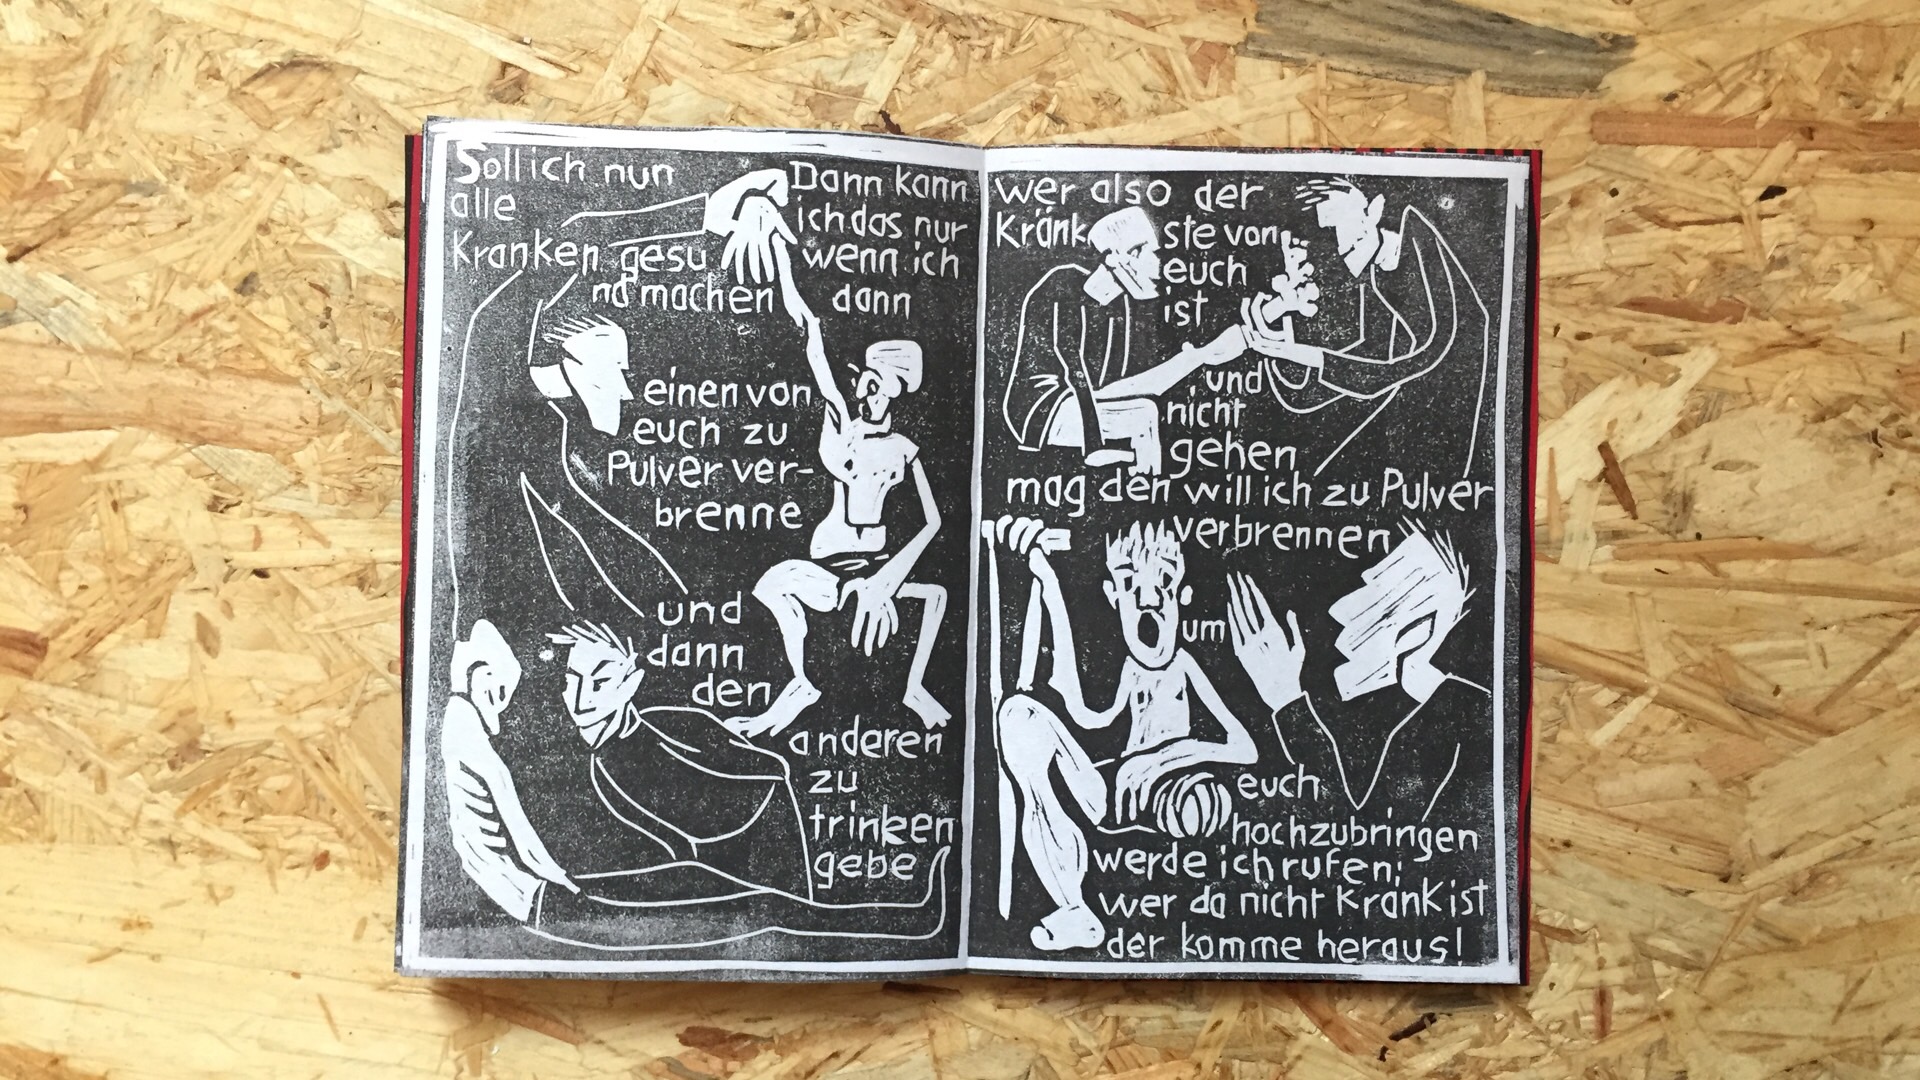 Soll ich nun
alle
Kranken gesu
nd machen
Dann kann
ich das nur
wenn ich
dann
einen von
euch zu
Pulver ver-
brenne
und
dann
den
anderen
zu
trinken
gebe
wer also der
Kränk ste von
euch
ist
und
nicht
gehen
mag den will ich zu Pulver
verbrennen
um
euch
hochzubringen
werde ich rufen;
wer da nicht krank ist
der komme heraus!